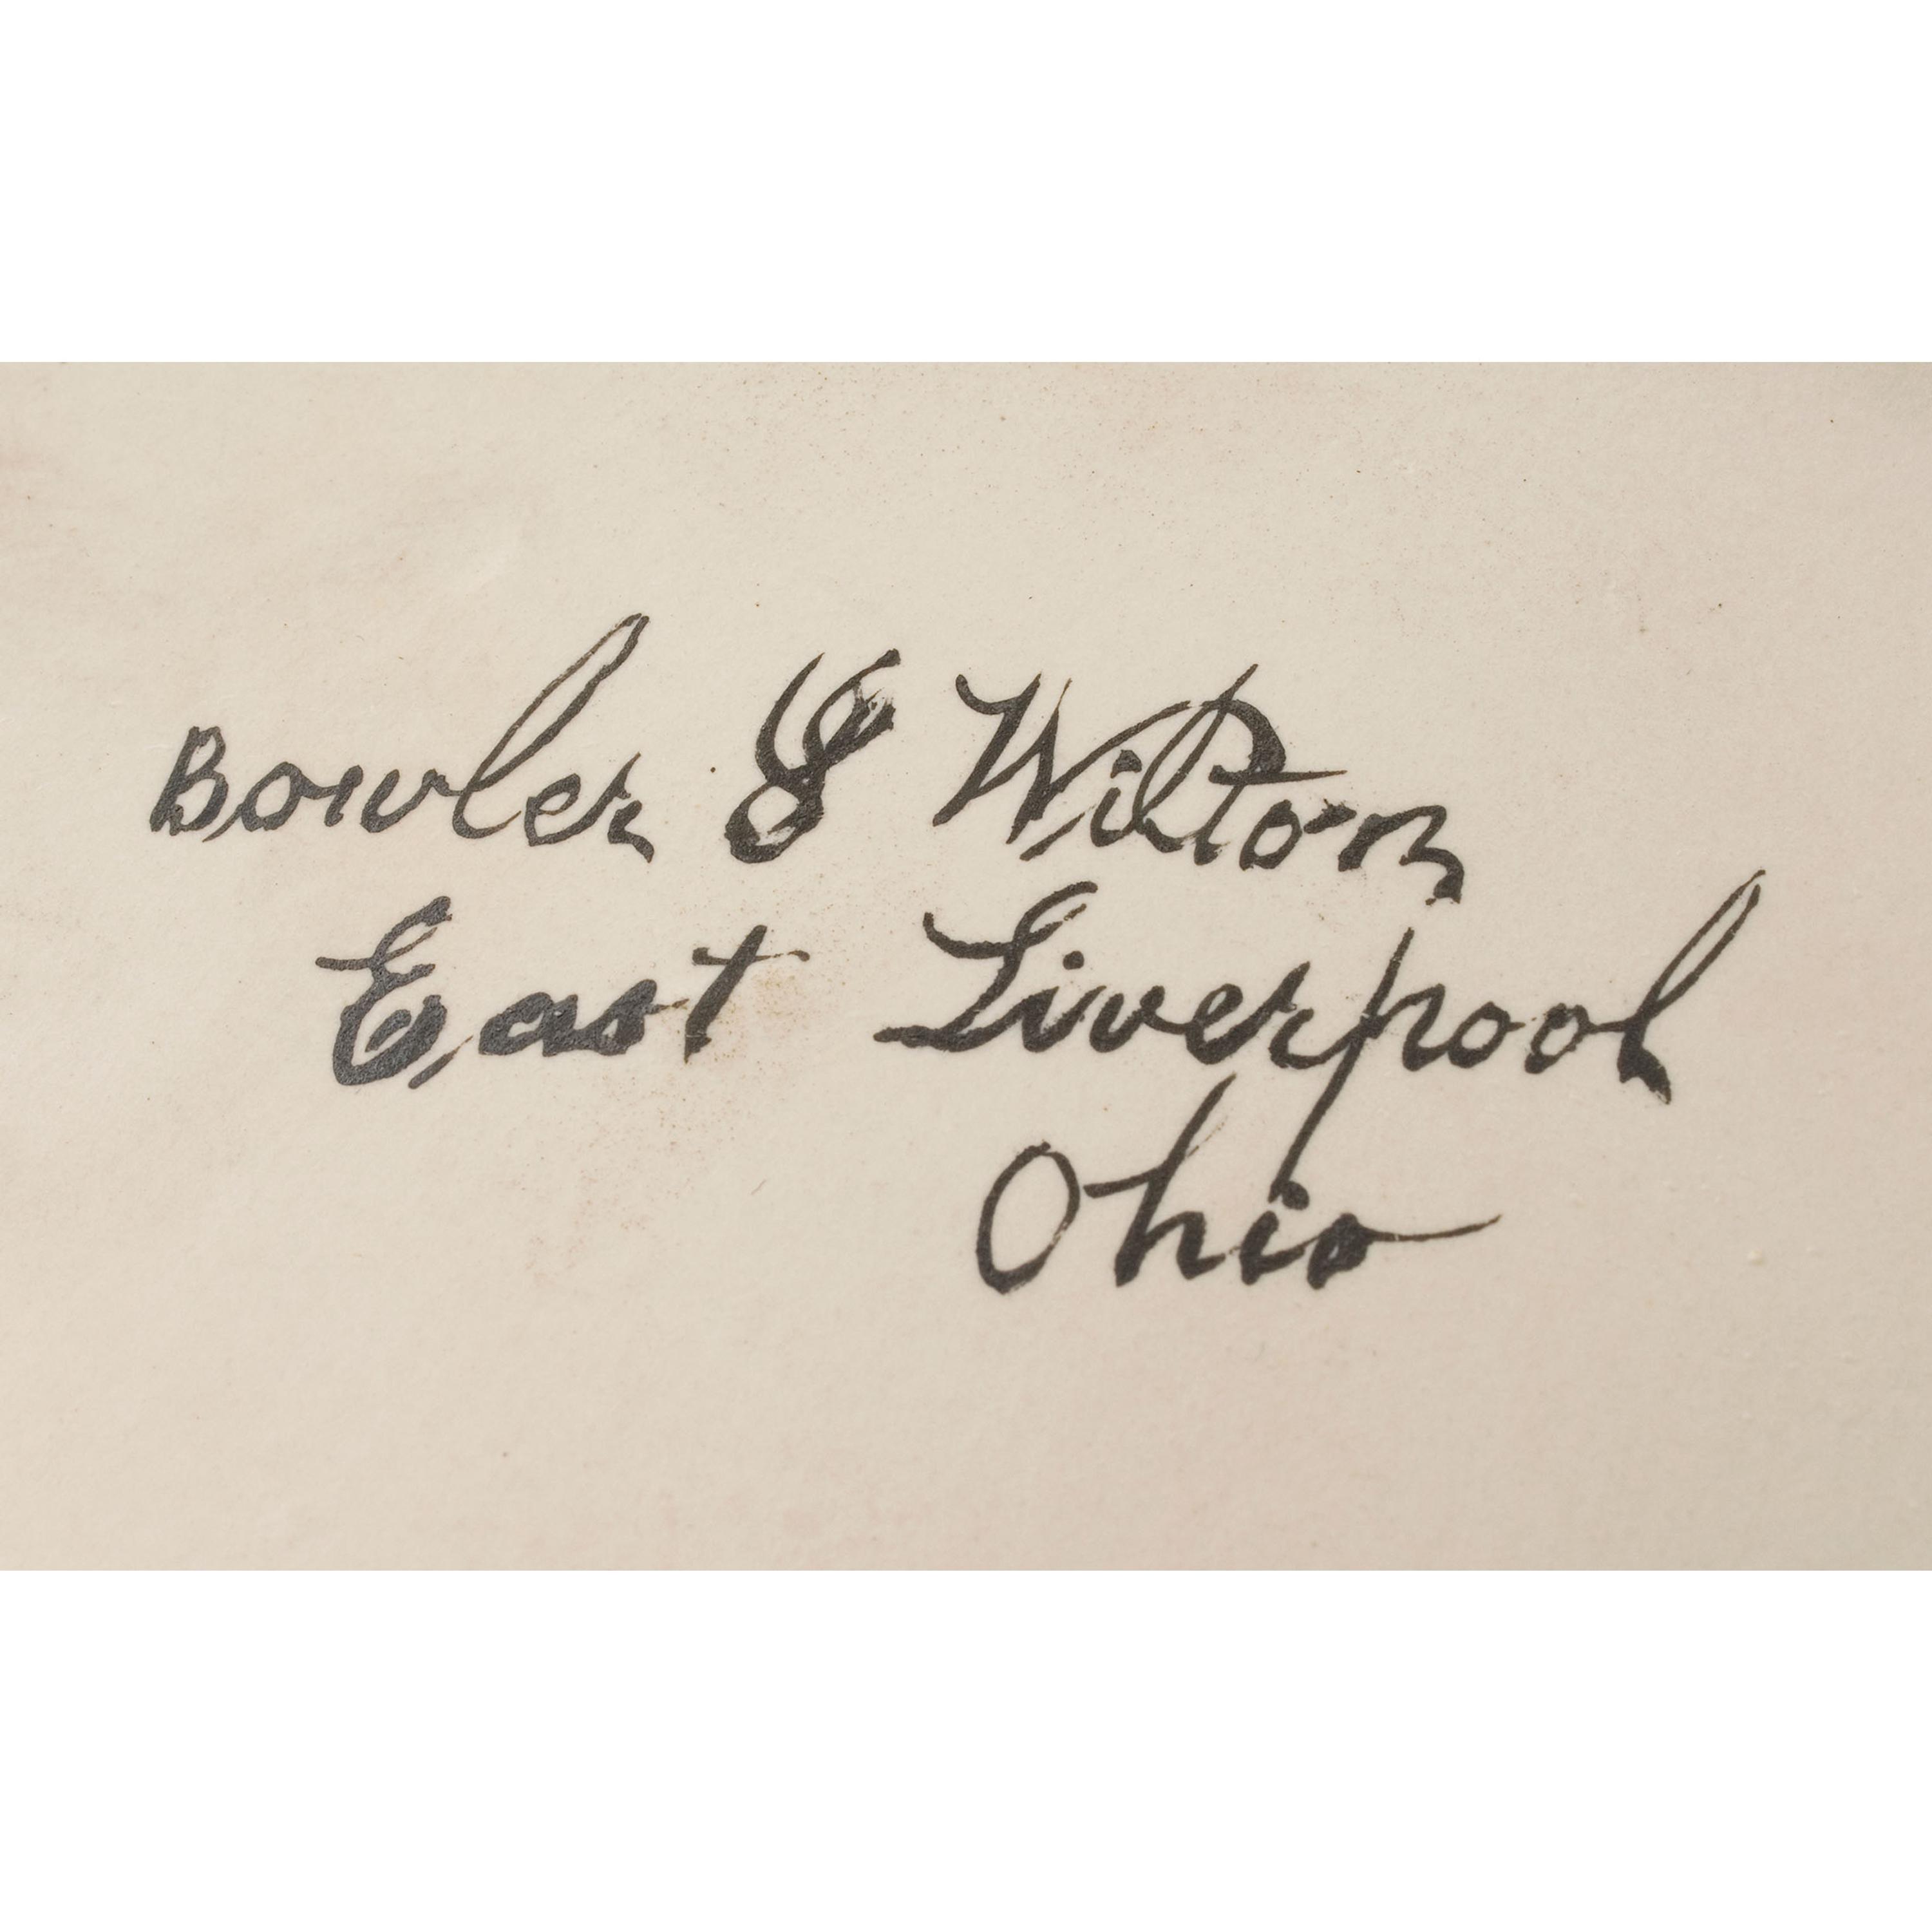 Bowler & Wilton
East Liverpool
Ohio